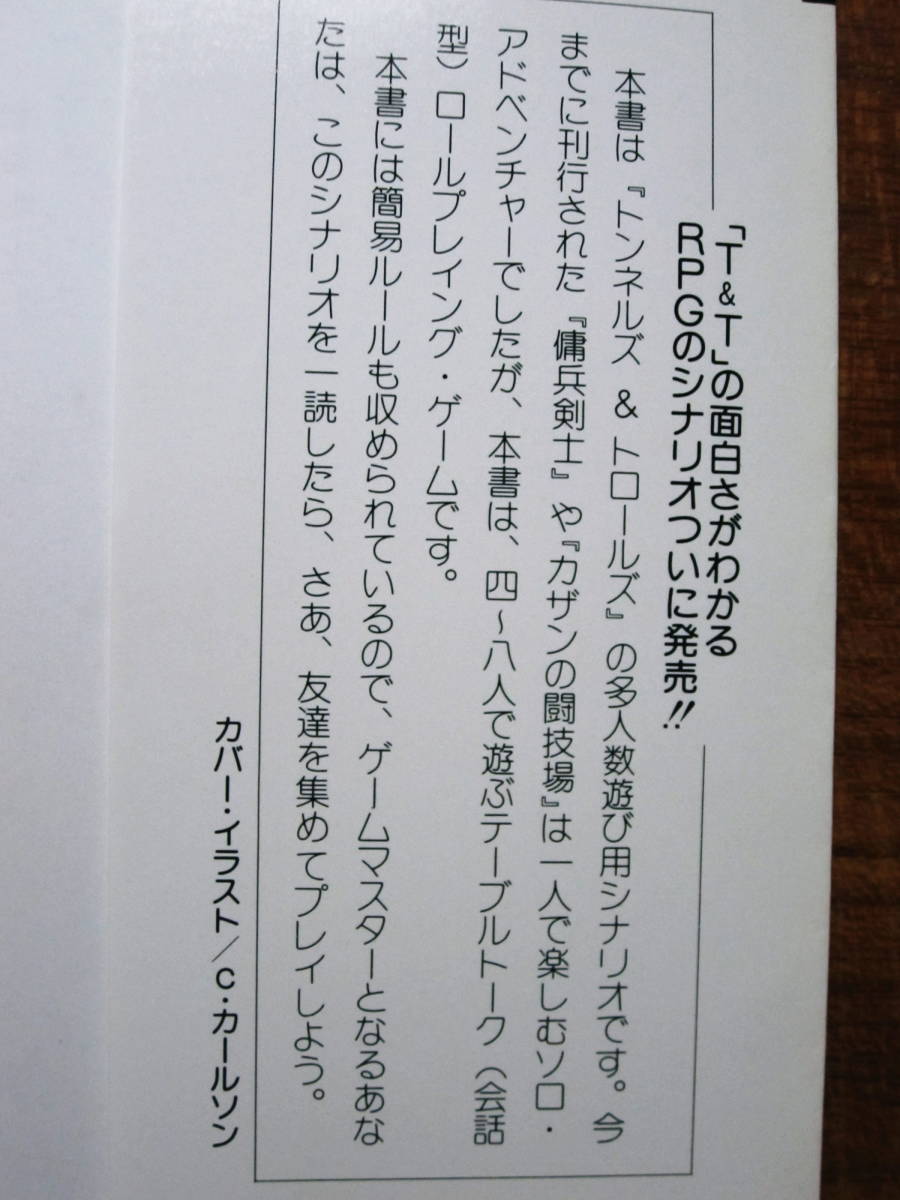 「T&T」の面白さがわかる
RPGのシナリオついに発売!!
本書は『トンネルズ&トロールズ』の多人数遊び用シナリオです。今
までに刊行された『傭兵剣士』や『カザンの闘技場』は一人で楽しむソロ・
アドベンチャーでしたが、本書は、四～八人で遊ぶテーブルトーク（会話
型）ロールプレイング・ゲームです。
本書には簡易ルールも収められているので、ゲームマスターとなるあな
たは、このシナリオを一読したら、さあ、友達を集めてプレイしよう。
カバー・イラスト／C・カールソン